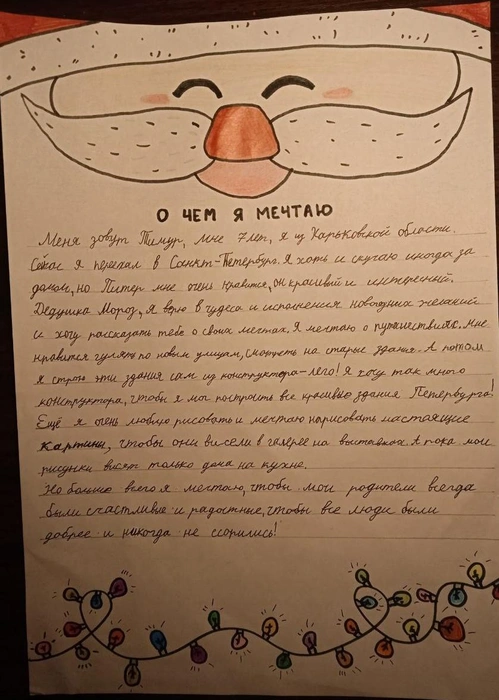 О ЧЕМ Я МЕЧТАЮ
Меня зовут Тимур, мне 7 лет, я из Харьковской области.
Сейчас я переехал в Санкт-Петербург. Я хоть и скучаю иногда за
домом, но Питер мне очень нравится, он красивый и интересный.
Дедушка Мороз, я верю в чудеса и исполнения новогодних желаний
и хочу рассказать тебе о своих мечтах. Я мечтаю о путешествиях, мне
нравится гулять по новым улицам, смотреть на старые здания. А потом
я строю эти здания сам из конструктора-лего! Я хочу так много
конструктора, чтобы я мог построить все красивые здания Петербурга!
Ещё я очень люблю рисовать и мечтаю нарисовать настоящие
картины, чтобы они висели в галерее на выставках. А пока мои
рисунки висят только дома на кухне.
Но больше всего я мечтаю, чтобы мои родители всегда
были счастливые и радостные, чтобы все люди были
добрее и никогда не ссорились!